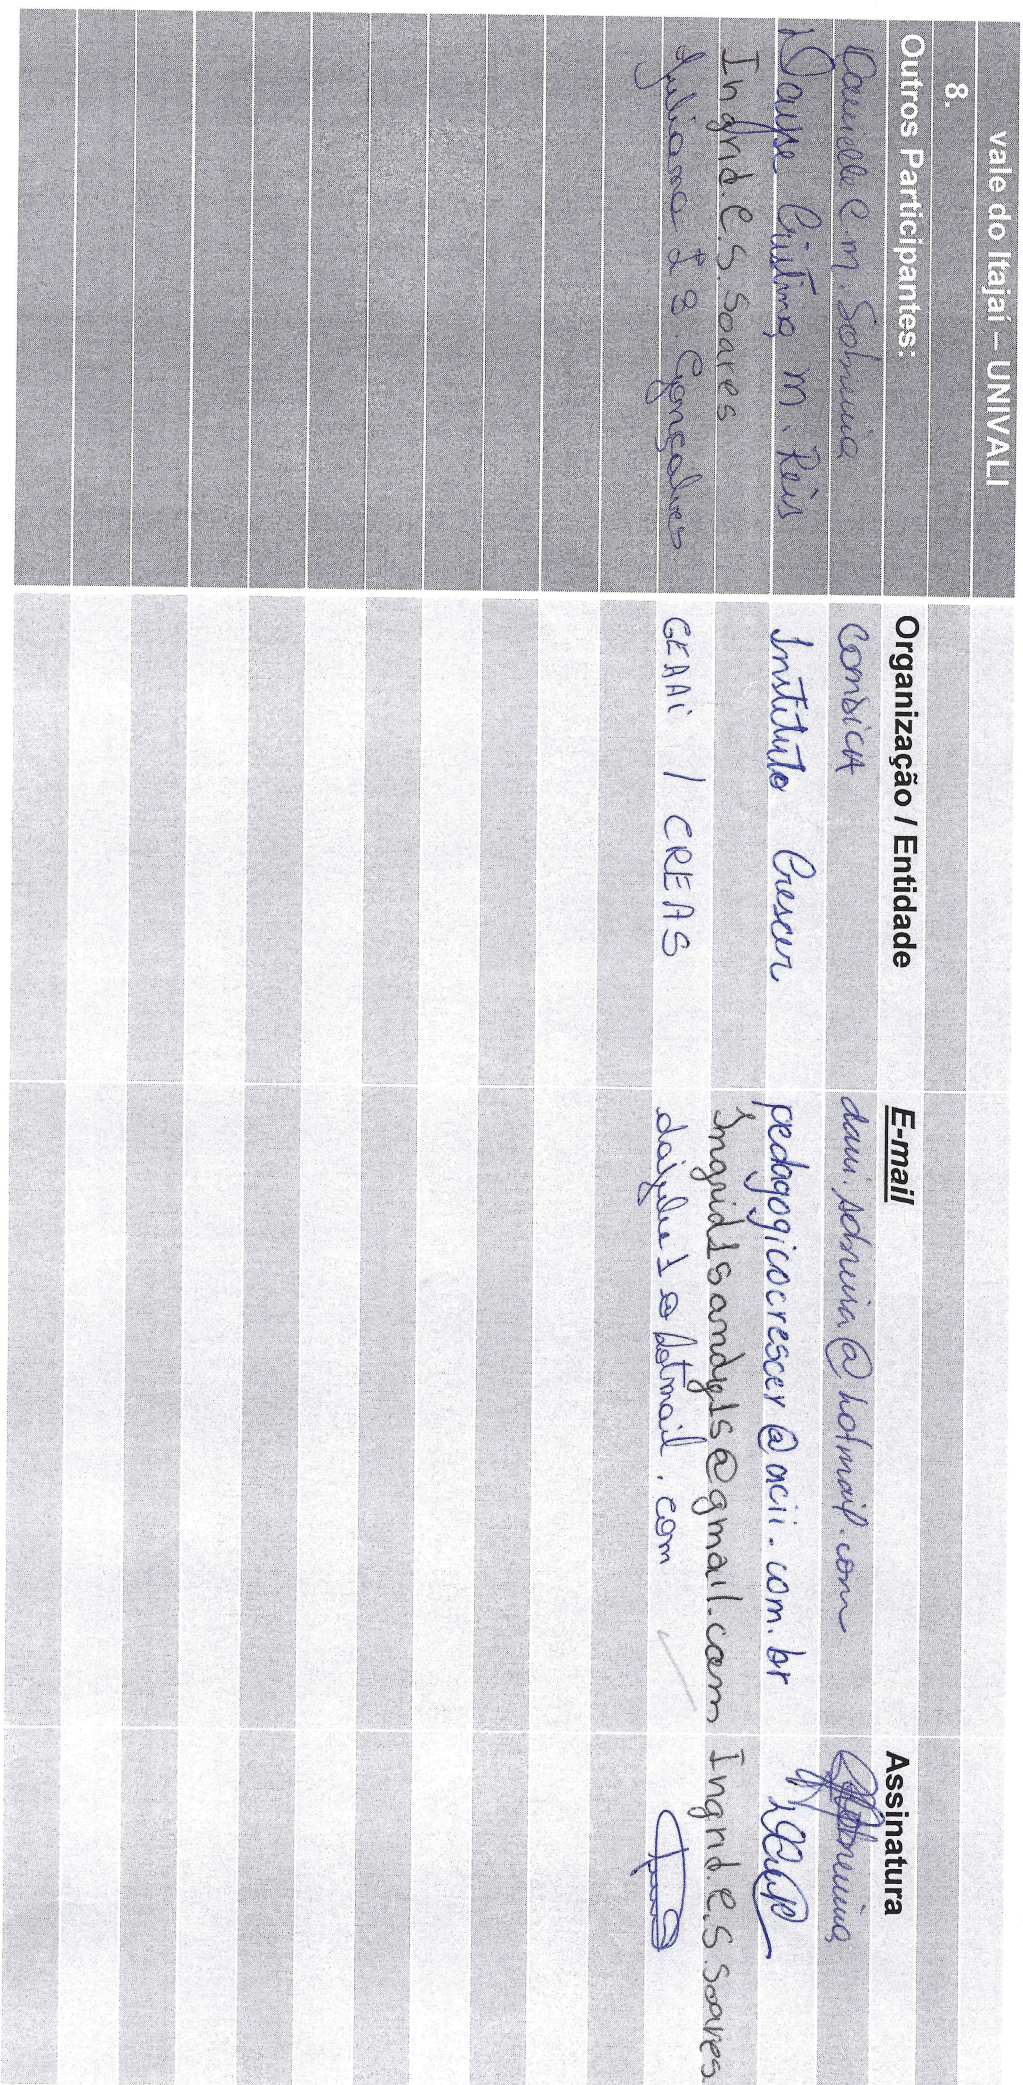 vale do Itajaí – UNIVALI
8.
Outros Participantes: Organização / Entidade E-mail Assinatura
Danielle C. M. Sobreira COMDICA dani.sobreira@hotmail.com
Dayse Cristina M. Reis Instituto Crescer pedagogicocrescer@acii.com.br
Ingrid.C.S.Soares Ingrid.C.S.Soares
Juliana Gonçalves GEAAi / CREAS